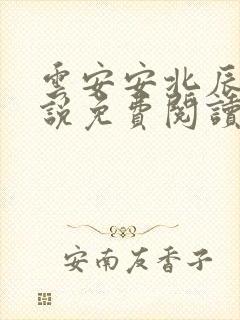 雲安安北辰
說免費閱讀
安南友香子